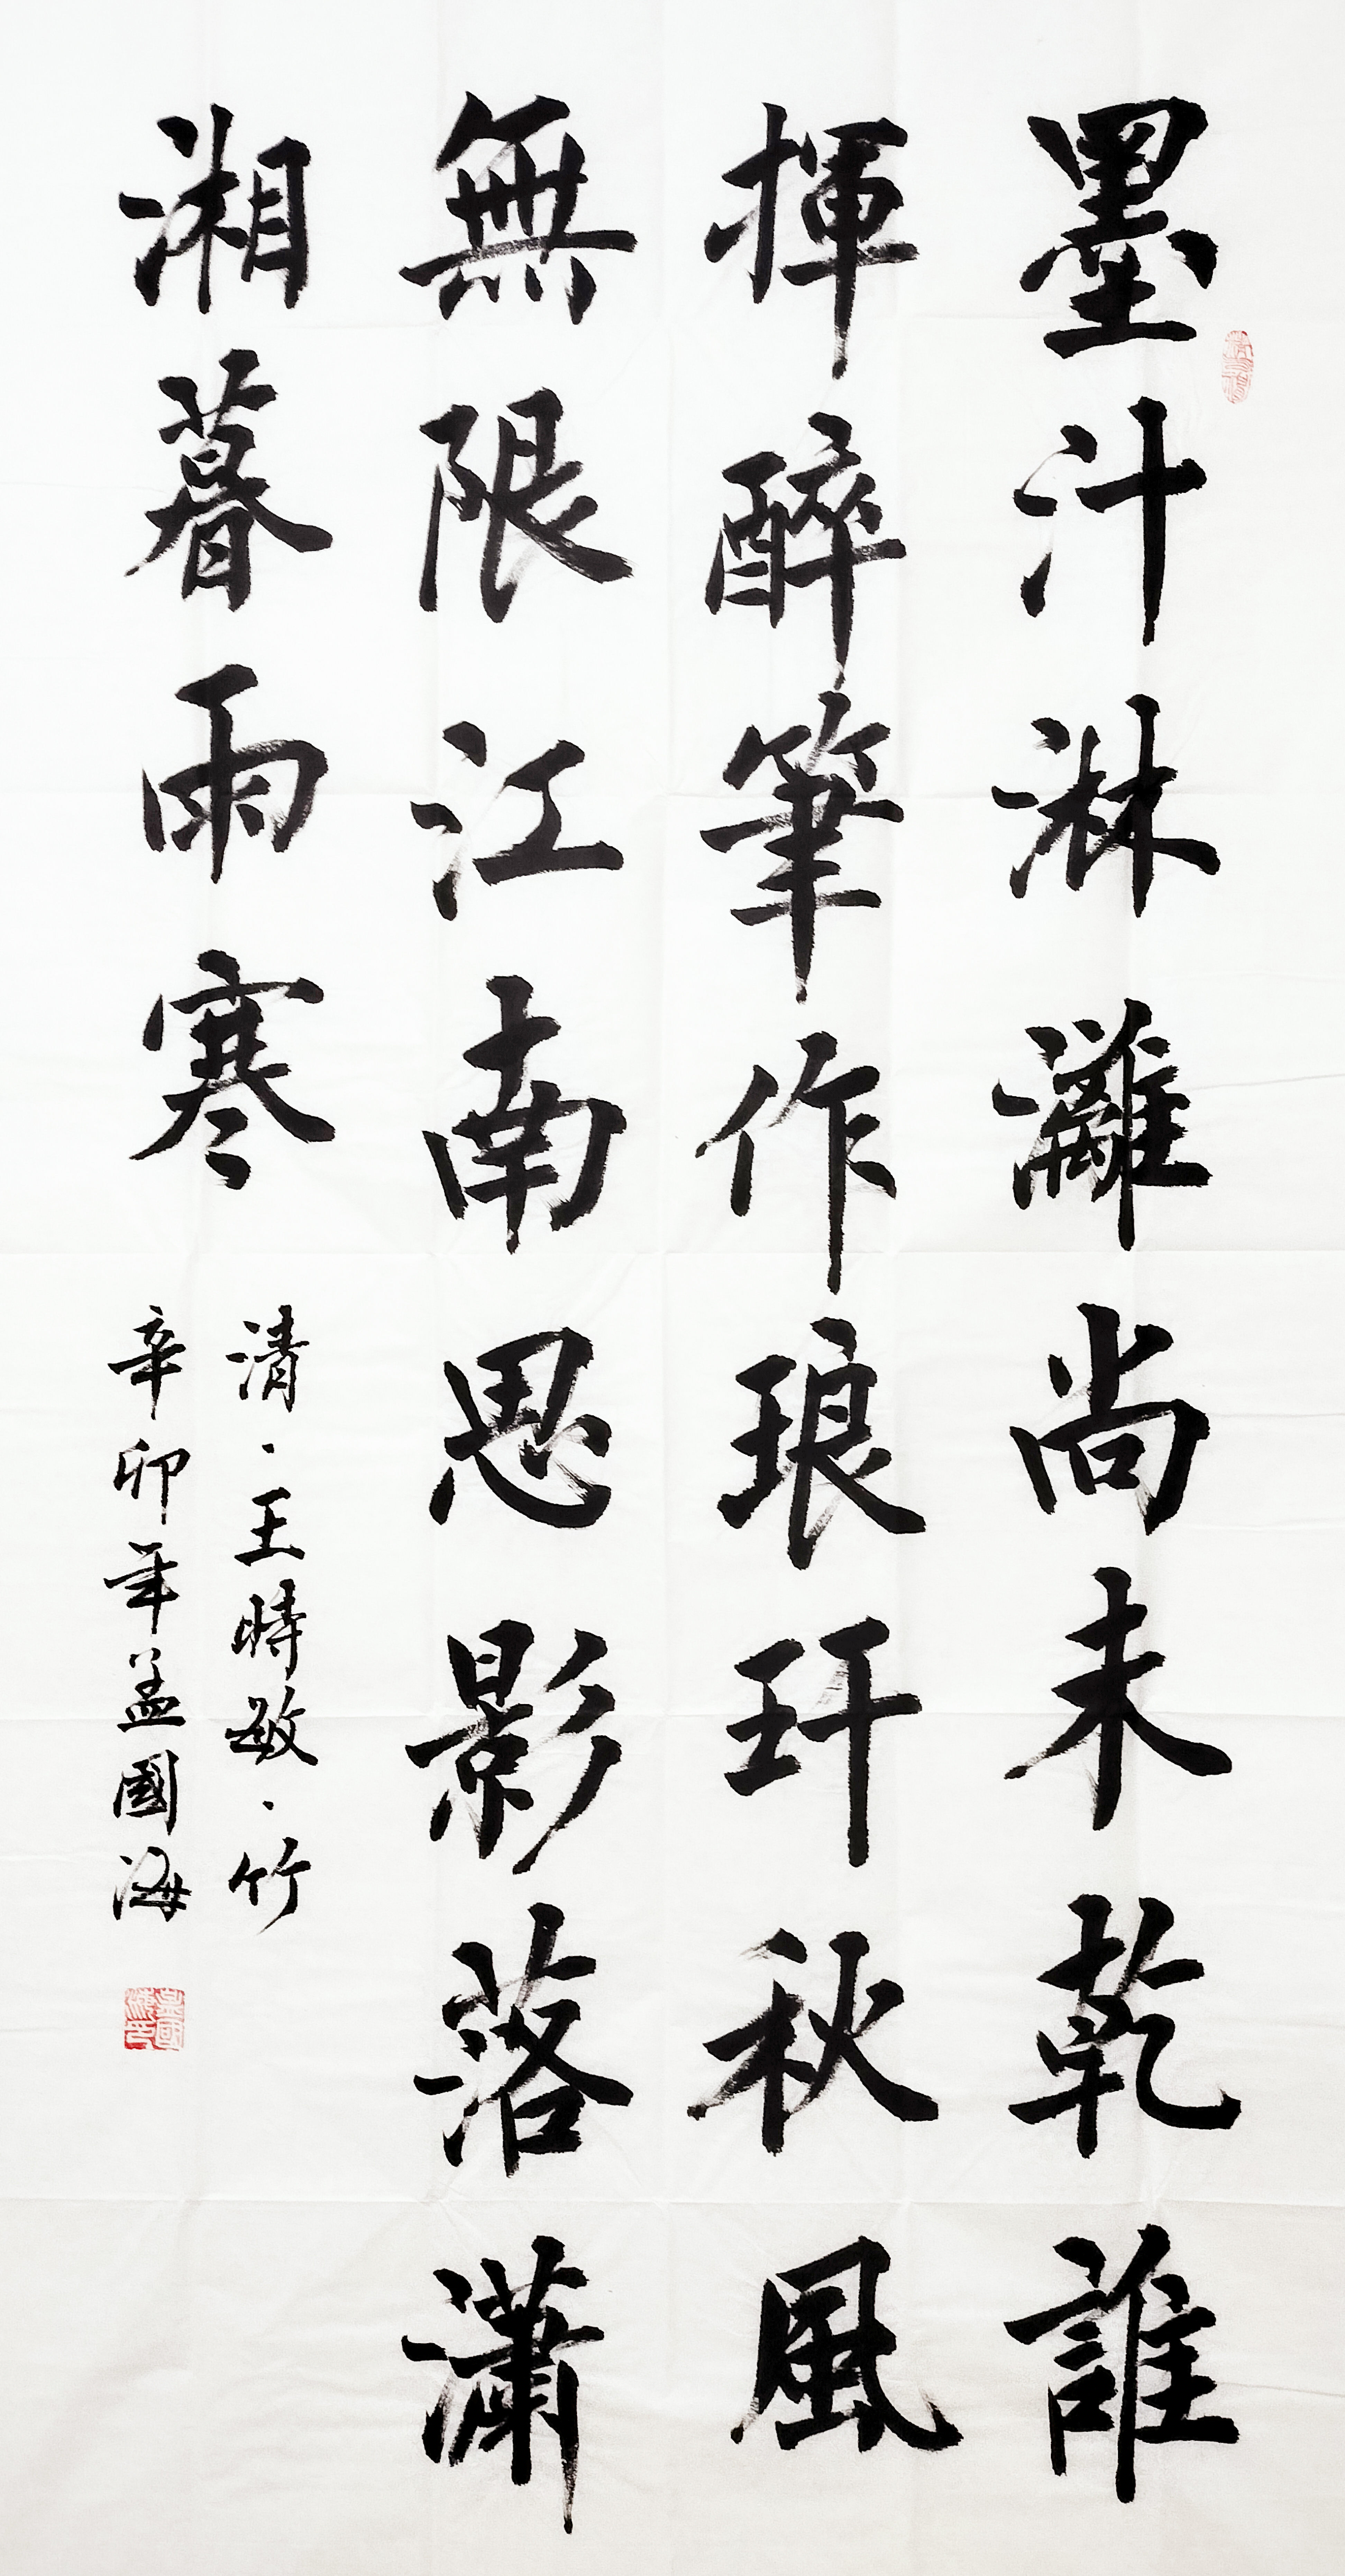 墨汁淋灕尚未乾誰
揮醉筆作琅玕秋風
無限江南思影落瀟
湘暮雨寒
清·王時敏·竹
辛卯年孟國海